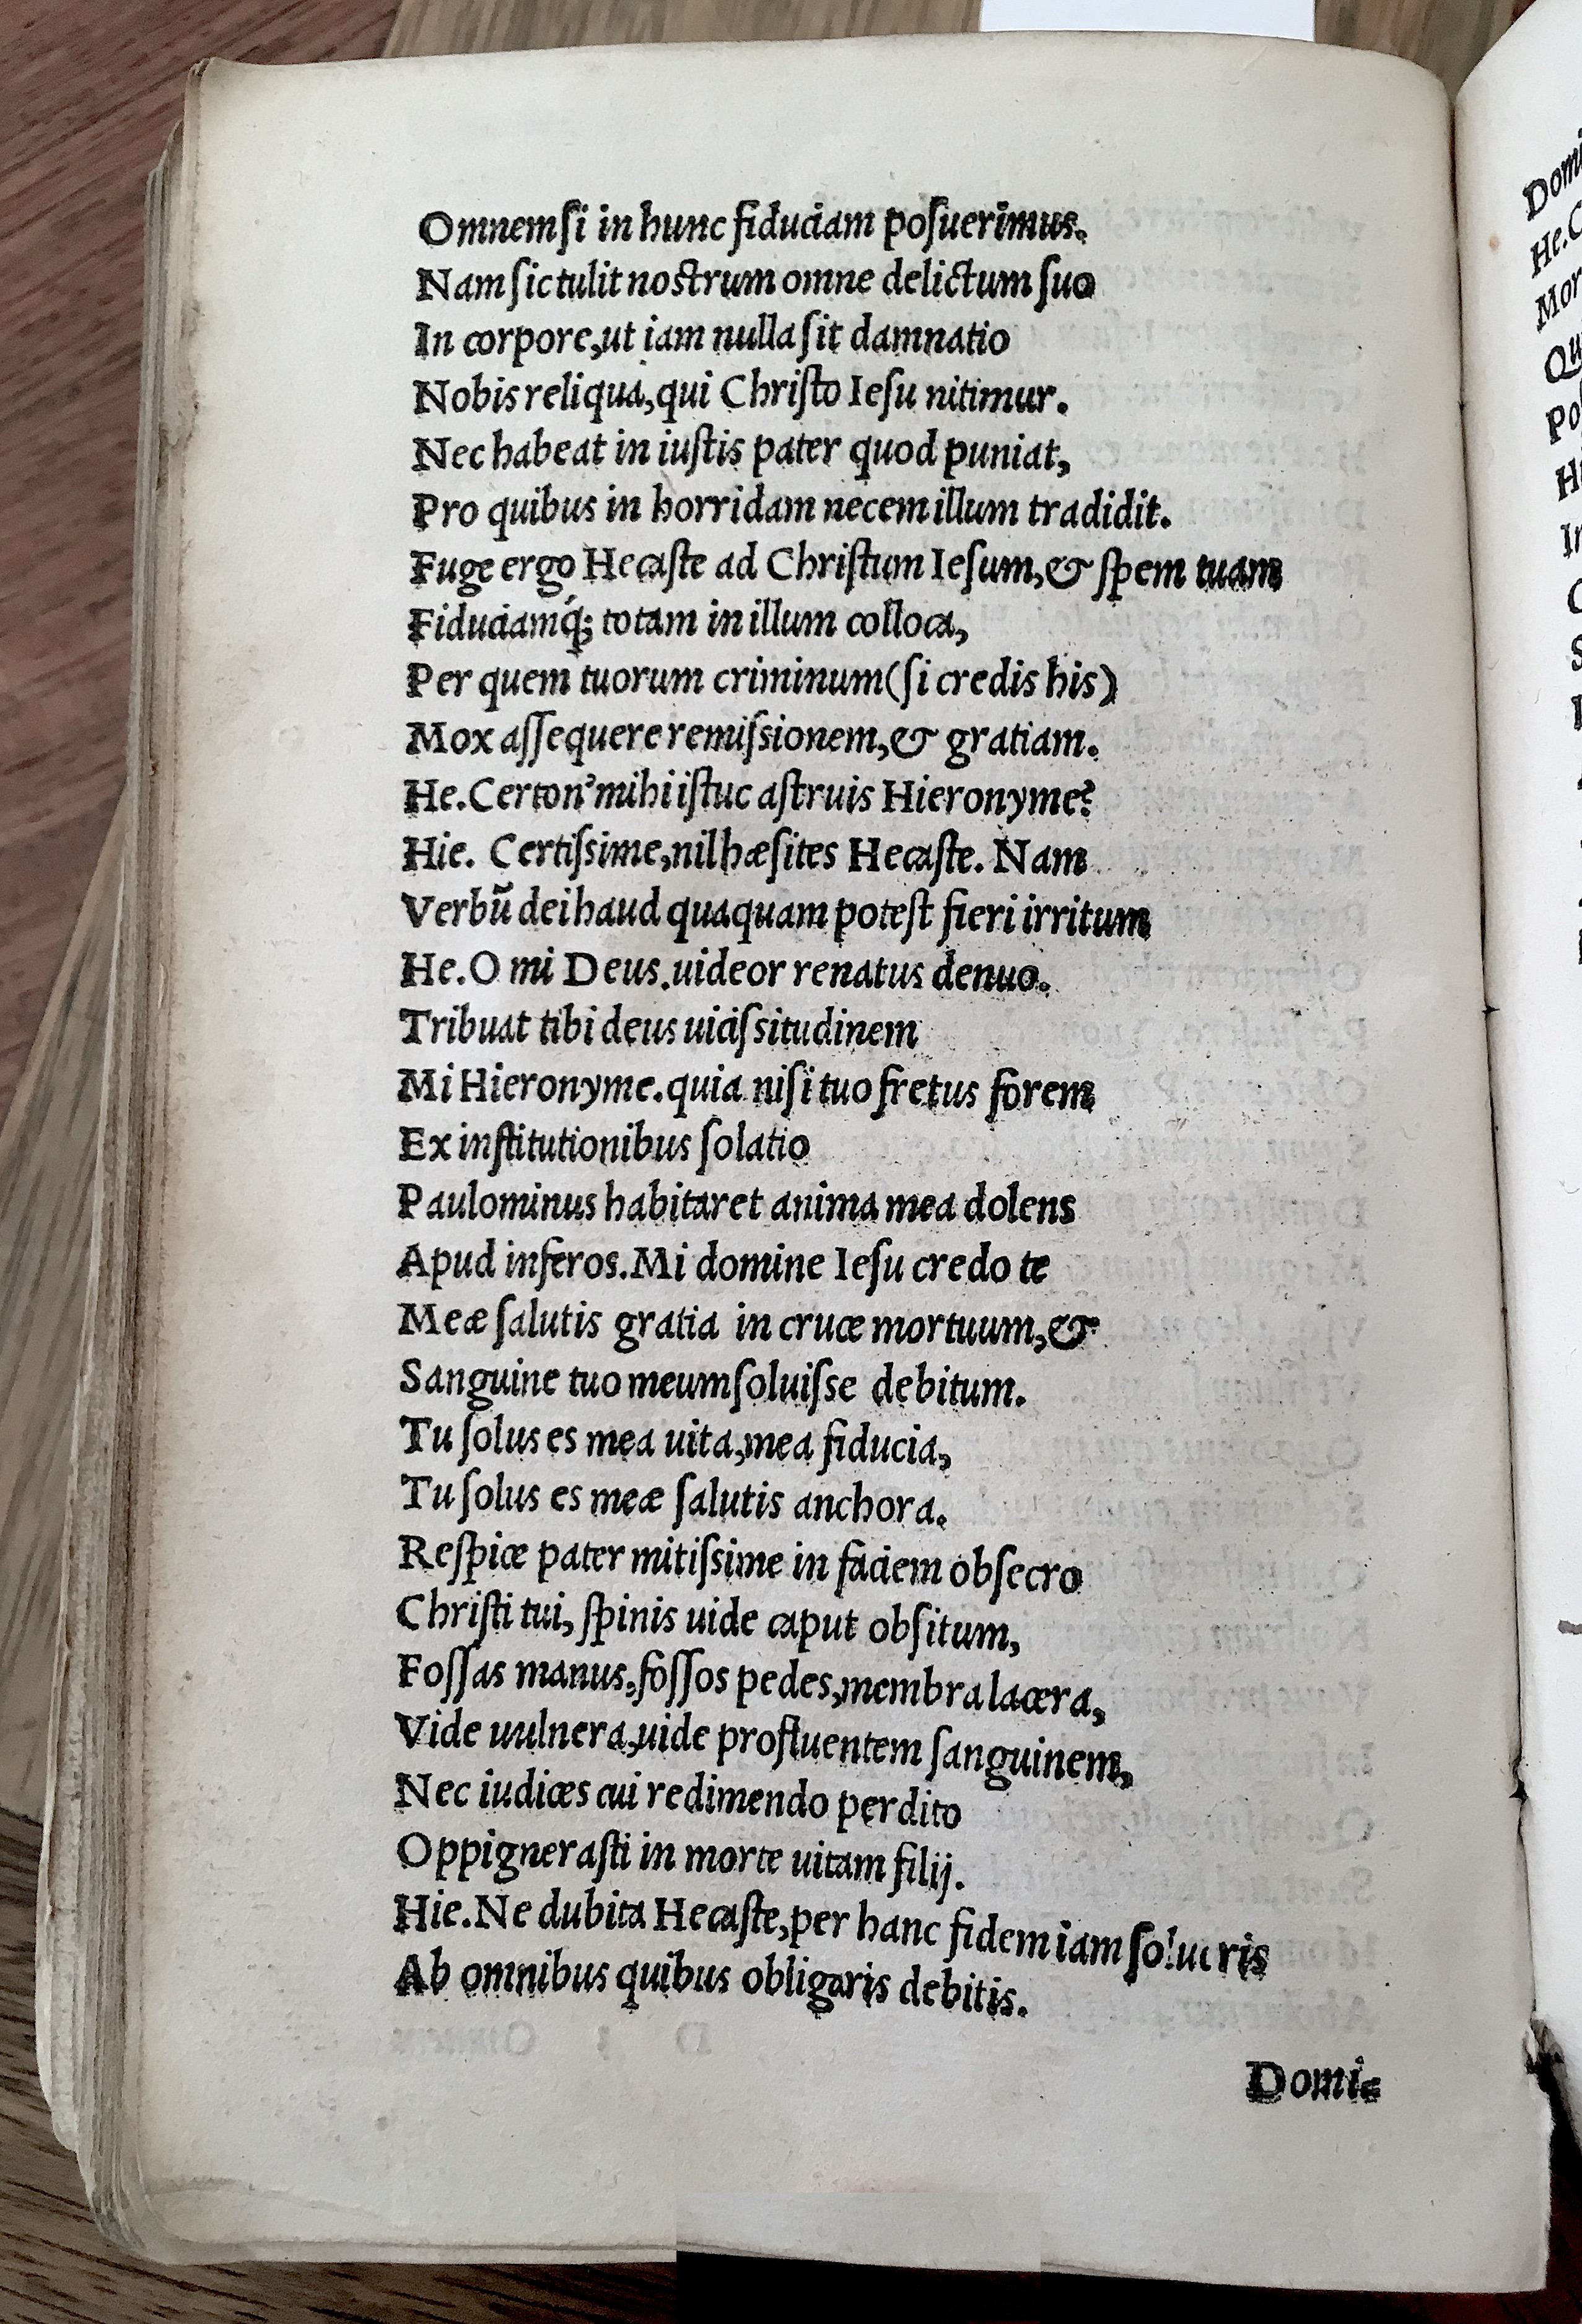 Omnem ſi in hunc fiduciam poſuerimus.
Nam ſic tulit noſtrum omne delictum ſuo
In corpore, ut iam nulla ſit damnatio
Nobis reliqua, qui Chriſto Ieſu nitimur.
Nec habeat in iuſtis pater quod puniat,
Pro quibus in horridam necem illum tradidit.
Fuge ergo Hecaſte ad Chriſtum Ieſum, & ſpem tuam
Fiduciamq́; totam in illum colloca,
Per quem tuorum criminum (ſi credis his)
Mox aſſequere remiſsionem, & gratiam.
He. Certon' mihi iſtuc aſtruis Hieronyme?
Hie. Certiſsime, nil hæſites Hecaſte. Nam
Verbũ dei haud quaquam poteſt fieri irritum
He. O mi Deus. uideor renatus denuo.
Tribuat tibi deus uiciſsitudinem
Mi Hieronyme. quia niſi tuo fretus forem
Ex inſtitutionibus ſolatio
Paulominus habitaret anima mea dolens
Apud inferos. Mi domine Ieſu credo te
Meæ ſalutis gratia in cruce mortuum, &
Sanguine tuo meum ſoluiſse debitum.
Tu ſolus es mea uita, mea fiducia,
Tu ſolus es meæ ſalutis anchora.
Reſpice pater mitiſsime in faciem obſecro
Chriſti tui, ſpinis uide caput obſitum,
Foſſas manus, foſſos pedes, membra lacera,
Vide uulnera, uide profluentem ſanguinem,
Nec iudices cui redimendo perdito
Oppigneraſti in morte uitam filij.
Hie. Ne dubita Hecaſte, per hanc fidem iam ſolueris
Ab omnibus quibus obligaris debitis.
Domi-
Domi
He.
Mor
Qu